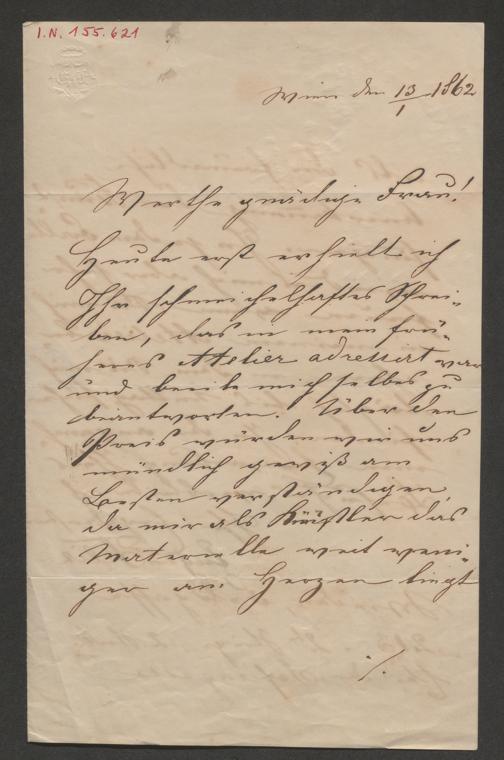 I.N. 155.621
Wien den 13/1 1862
Werthe gnädige Frau!
Heute erst erhielt ich
Ihr schmeichelhaftes Schrei-
ben, das in mein frü-
heres Atelier adressirt war
und beeile mich selbes zu
beantworten. Über den
Preis würden wir uns
mündlich gewiß am
Besten verständigen,
da mir als Künstler das
Materielle weit weni-
ger am Herzen liegt
./.